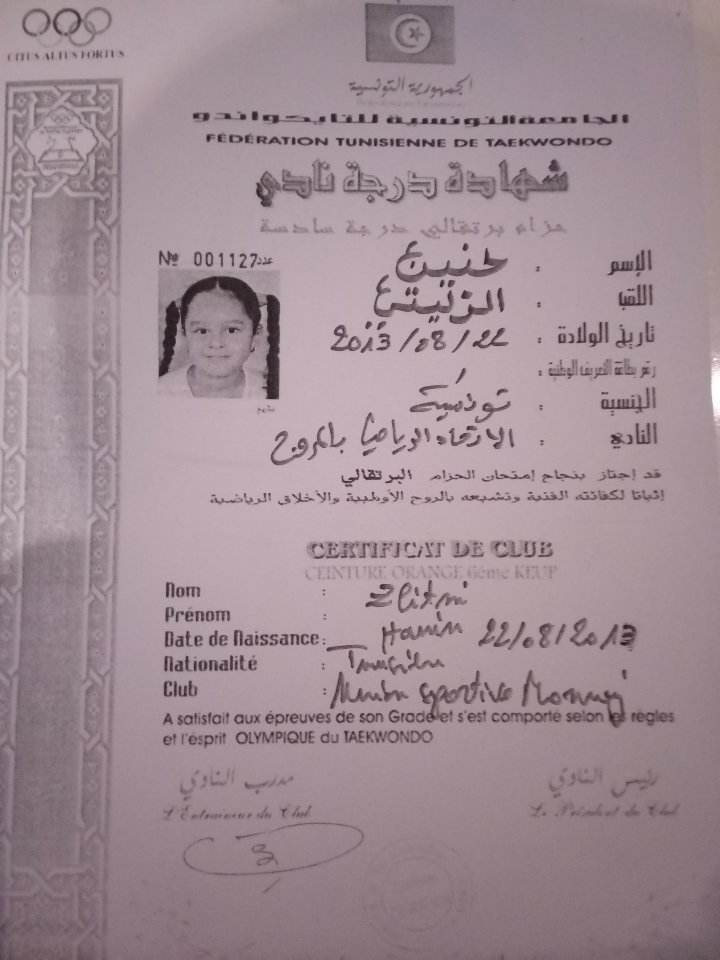 CITUS ALTUS FORTUS
الجمهورية التونسية
الجامعة التونسية للتايكواندو
FÉDÉRATION TUNISIENNE DE TAEKWONDO
شهادة درجة نادي
حزام برتقالي درجة سادسة
№ 001127 عدد
الإسم : حنين
اللقب : الزليتني
تاريخ الولادة : 2013/08/22
رقم بطاقة التعريف الوطنية :
الجنسية : تونسية
النادي : الاتحاد الرياضي بالمروج
قد إجتاز بنجاح إمتحان الحزام البرتقالي
إثباتا لكفائته الفنية وتشبعه بالروح الأولمبية والأخلاق الرياضية
CERTIFICAT DE CLUB
CEINTURE ORANGE 6éme KEUP
Nom : Zlitni
Prénom : Hanin
Date de Naissance: 22/08/2013
Nationalité :
Club : sportive
A satisfait aux épreuves de son Grade et s'est comporté selon les règles
et l'ésprit OLYMPIQUE du TAEKWONDO
مدرب النادي رئيس النادي
L'Entraineur du Club Le Président du Club